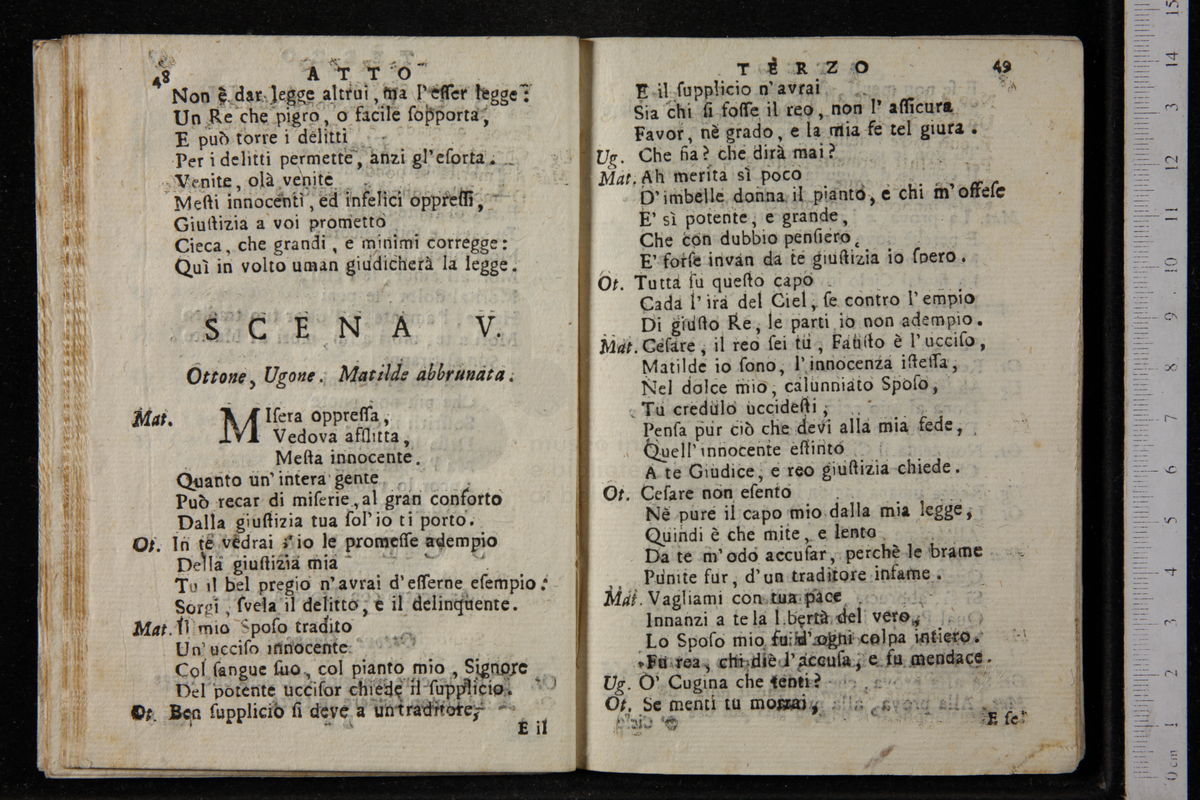 48
ATTO
Non è dar legge altrui, ma l'eſſer legge:
Un Re che pigro, o facile ſopporta,
E può torre i delitti
Per i delitti permette, anzi gl'eſorta.
Venite, olà venite
Meſti innocenti, ed infelici oppreſſi,
Giuſtizia a voi prometto
Cieca, che grandi, e minimi corregge:
Quì in volto uman giudicherà la legge.
SCENA V.
Ottone, Ugone. Matilde abbrunata.
Mat. MIſera oppreſſa,
Vedova afflitta,
Meſta innocente.
Quanto un'intera gente
Può recar di miſerie, al gran conforto
Dalla giuſtizia tua ſol'io ti porto.
Ot. In te vedrai s'io le promeſſe adempio
Della giuſtizia mia
Tu il bel pregio n'avrai d'eſſerne eſempio:
Sorgi, ſvela il delitto, e il delinquente.
Mat. Il mio Spoſo tradito
Un'ucciſo innocente
Col ſangue ſuo, col pianto mio, Signore
Del potente ucciſor chiede il ſupplicio.
Ot. Ben ſupplicio ſi deve a un traditore,
E il
TERZO
49
E il ſupplicio n'avrai
Sia chi ſi foſſe il reo, non l'aſſicura
Favor, nè grado, e la mia fe tel giura.
Ug. Che fia? che dirà mai?
Mat. Ah merita sì poco
D'imbelle donna il pianto, e chi m'offeſe
E' sì potente, e grande,
Che con dubbio penſiero,
E' forſe invan da te giuſtizia io ſpero.
Ot. Tutta ſu queſto capo
Cada l'ira del Ciel, ſe contro l'empio
Di giuſto Re, le parti io non adempio.
Mat. Ceſare, il reo ſei tu, Fauſto è l'ucciſo,
Matilde io ſono, l'innocenza iſteſſa,
Nel dolce mio, calunniato Spoſo,
Tu credulo uccideſti,
Penſa pur ciò che devi alla mia fede,
Quell'innocente eſtinto
A te Giudice, e reo giuſtizia chiede.
Ot. Ceſare non eſento
Nè pure il capo mio dalla mia legge,
Quindi è che mite, e lento
Da te m'odo accuſar, perchè le brame
Punite fur, d'un traditore infame.
Mat. Vagliami con tua pace
Innanzi a te la libertà del vero,
Lo Spoſo mio fu d'ogni colpa intiero.
Fu rea, chi diè l'accuſa, e fu mendace.
Ug. O' Cugina che tenti?
Ot. Se menti tu morrai,
E ſe